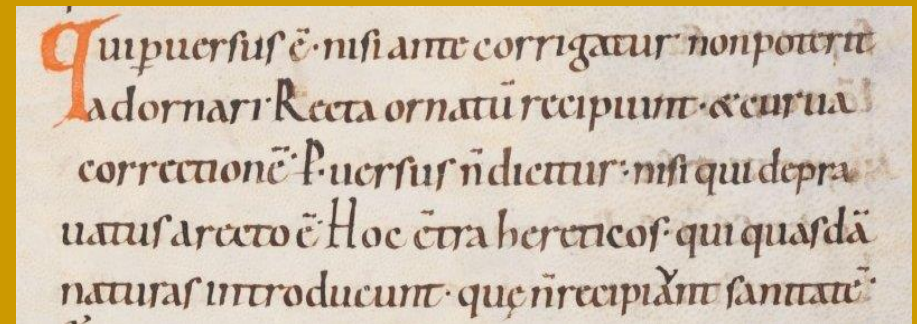 Qui puersus ē · nisi ante corrigatur non poterit
adornari · Recta ornatū recipiunt · & curua
correctionē · P·uersus n̄ dicitur · nisi qui depra
uatus a recto ē · Hoc c̄tra hereticos · qui quasdā
naturas introducunt · quę n̄ recipiant sanitatē ·